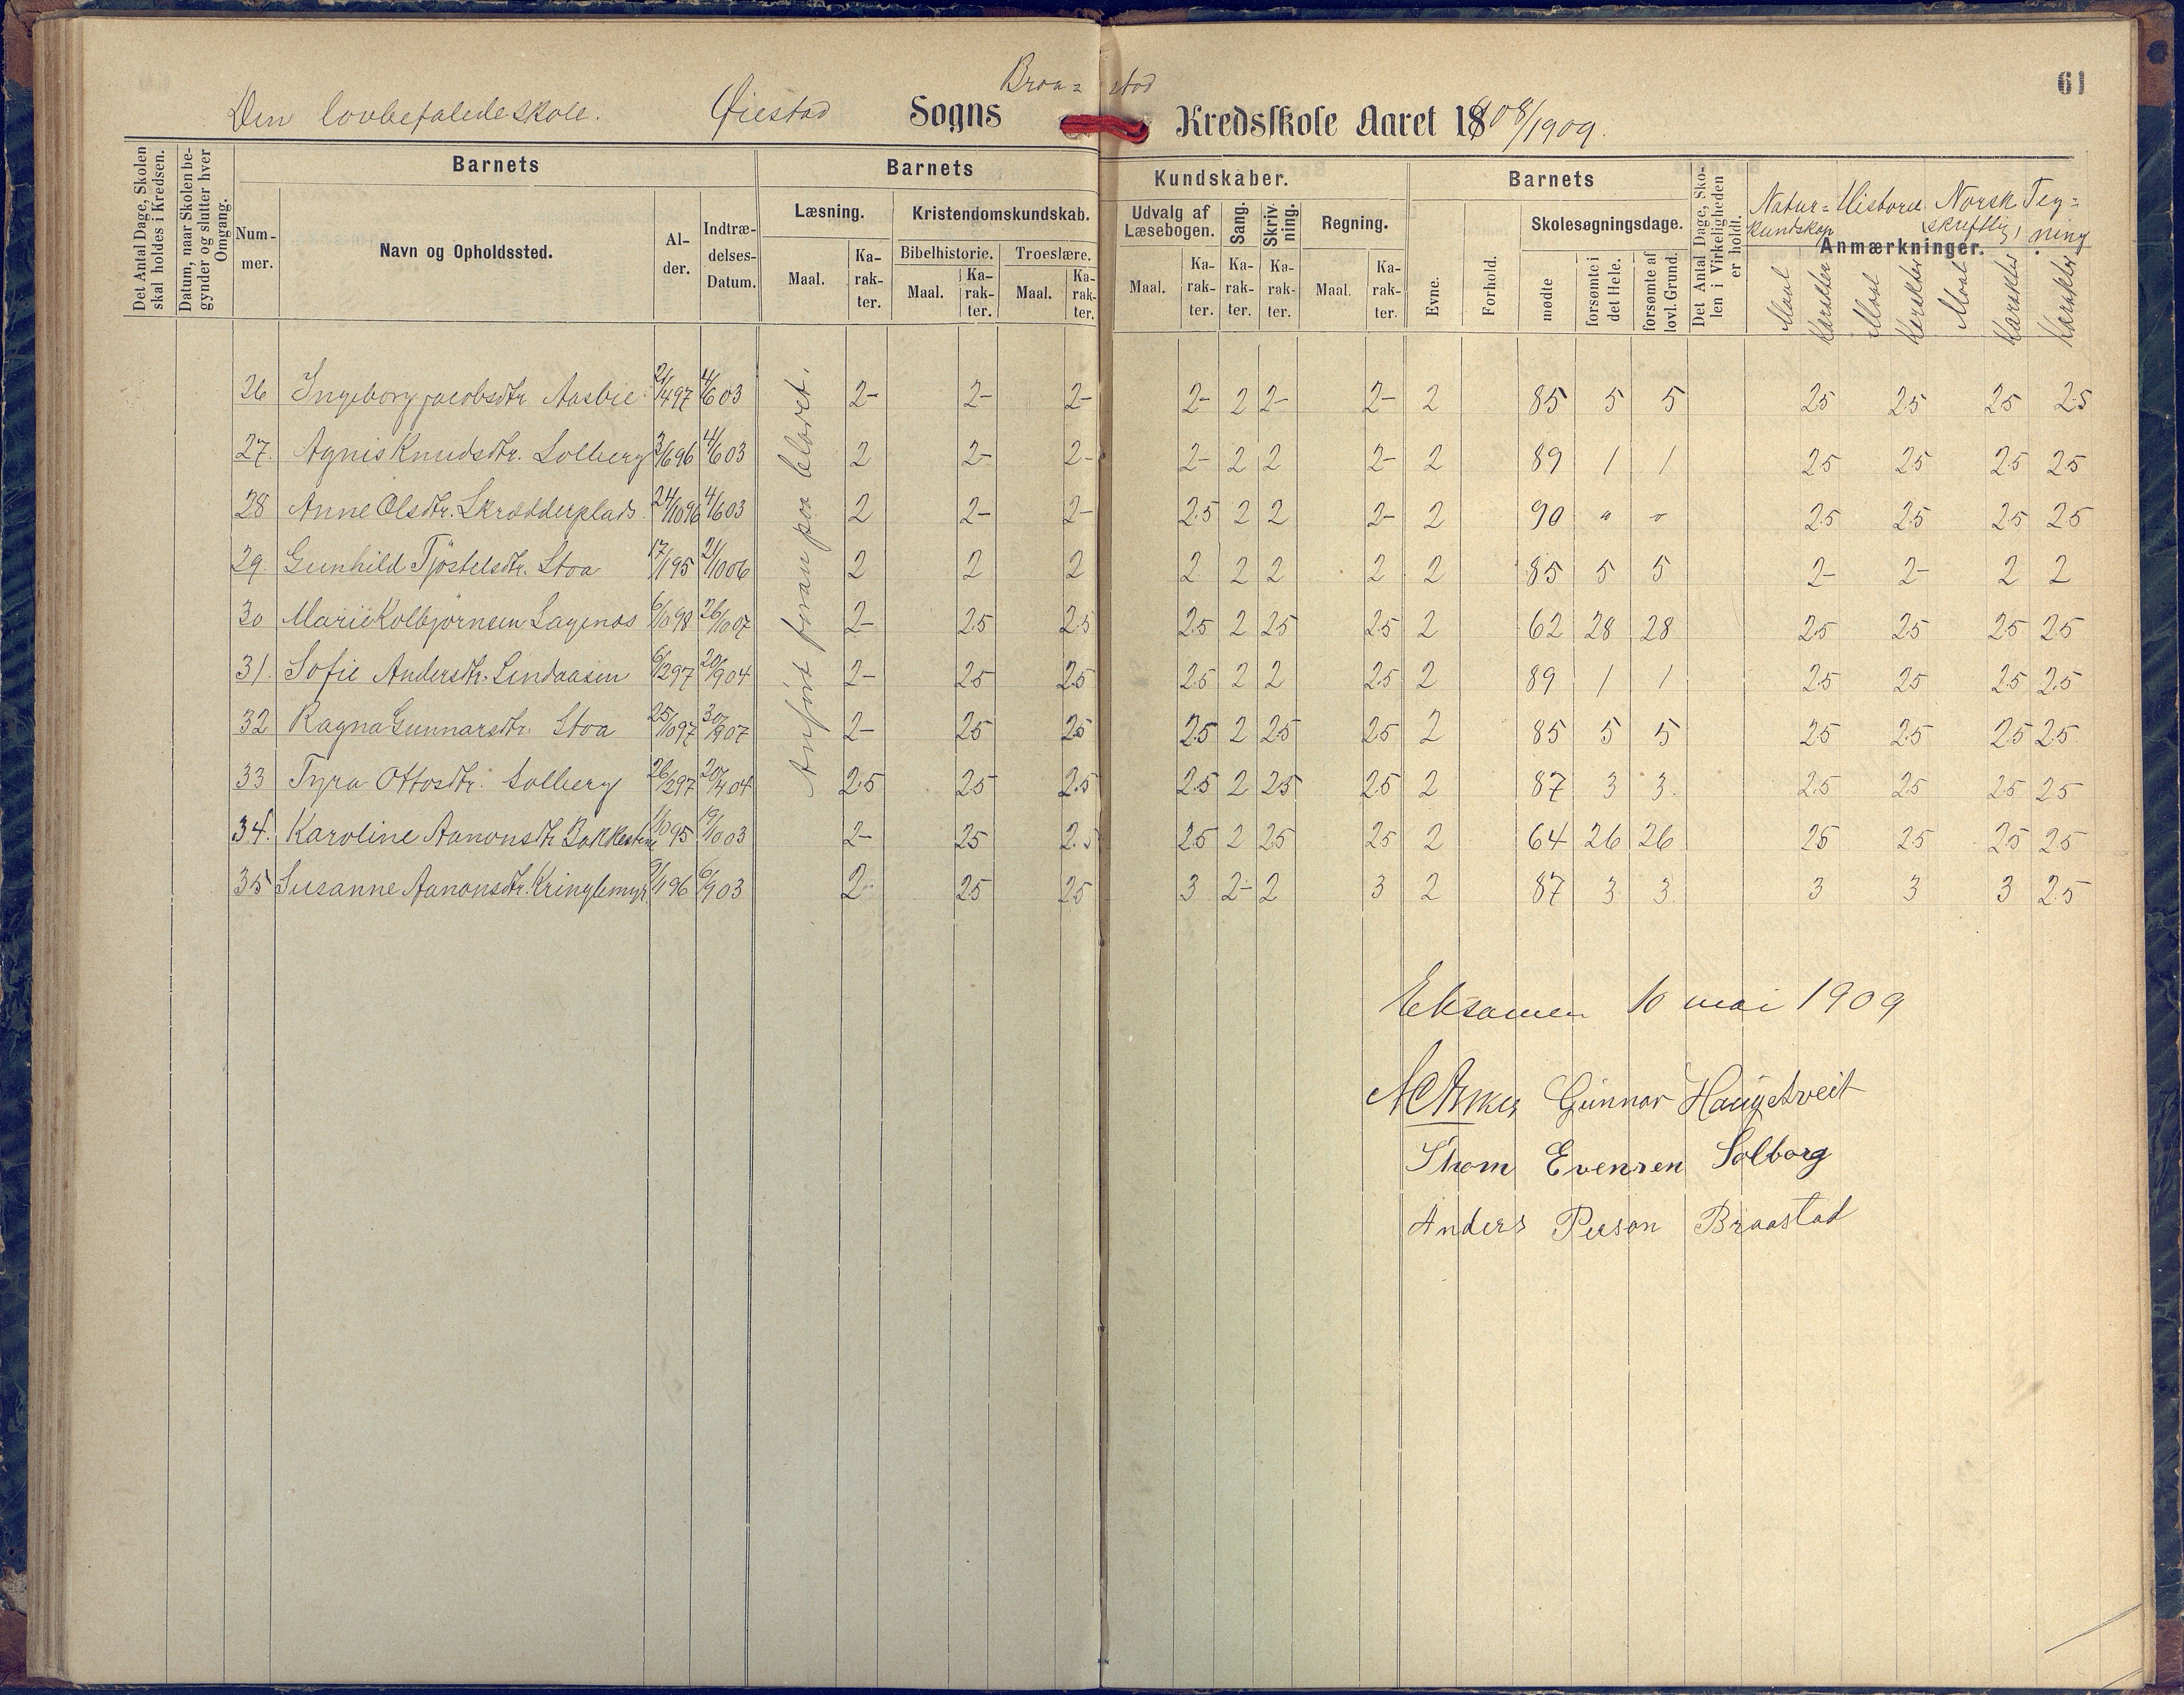 61
Den lovbefalede skole. Øiestad Sogns Braa= stad Kredsskole Aaret 1908/1909.
Det Antal Dage, Skolen skal holdes i Kredsen.
Datum, naar Skolen begynder og slutter hver Omgang.
Barnets
Num-mer.
Navn og Opholdssted.
Al-der.
Indtræ-delses-Datum.
Barnets Kundskaber.
Læsning.
Maal. Ka-rak-ter.
Kristendomskundskab.
Bibelhistorie. Troeslære.
Maal. Ka-rak-ter. Maal. Ka-rak-ter.
Udvalg af Læsebogen.
Maal. Ka-rak-ter.
Sang. Ka-rak-ter.
Skriv-ning. Ka-rak-ter.
Regning.
Maal. Ka-rak-ter.
Barnets
Evne. Forhold.
Skolesøgningsdage.
mødte forsømte i det Hele. forsømte af lovl. Grund.
Det Antal Dage, Skolen i Virkeligheden er holdt.
Natur=kundskap Historie Norsk skriftlig Teg=ning
Anmærkninger.
Maal Karakter Maal Karakter Maal Karakter Karakter
Anført foran paa bladet.
26 Ingeborg Jacobsdtr Aasbie 21/4 97 4/6 03 2- 2- 2- 2- 2 2- 2- 2 85 5 5 2.5 2.5 2.5 2.5
27. Agnis Knudsdtr. Solberg 3/6 96 4/6 03 2 2- 2- 2- 2 2 2- 2 89 1 1 2.5 2.5 2.5 2.5
28 Anne Olsdtr. Skrædderplads 24/10 96 4/6 03 2 2- 2- 2.5 2 2 2- 2 90 " " 2.5 2.5 2.5 2.5
29. Gunhild Tjøstelsdtr. Stoa 17/1 95 21/10 06 2 2 2 2 2 2 2 2 85 5 5 2- 2- 2 2
30 Marie Kolbjørnsen Lagenes 6/10 98 26/10 07 2- 2.5 2.5 2.5 2 2.5 2.5 2 62 28 28 2.5 2.5 2.5 2.5
31. Sofie Andersdtr. Lindaasen 6/2 97 20/9 04 2- 2.5 2.5 2.5 2 2 2.5 2 89 1 1 2.5 2.5 2.5 2.5
32 Ragna Gunnarsdtr. Stoa 25/10 97 30/9 07 2- 2.5 2.5 2.5 2 2.5 2.5 2 85 5 5 2.5 2.5 2.5 2.5
33 Tyra Ottosdtr. Solberg 26/2 97 20/4 04 2.5 2.5 2.5 2.5 2 2.5 2.5 2 87 3 3. 2.5 2.5 2.5 2.5
34. Karoline Aanonsdtr Bakkesten 1/10 95 19/10 03 2- 2.5 2.5 2.5 2 2.5 2.5 2 64 26 26 2.5 2.5 2.5 2.5
35 Susanne Aanonsdtr. Kringlemyr 9/1 96 6/9 03 2- 2.5 2.5 3 2- 2 3 2 87 3 3. 3 3 3 2.5
Eksamen 10 mai 1909
Gunnar Haugetveit
Thom Evensen Solborg
Anders Person Braastad